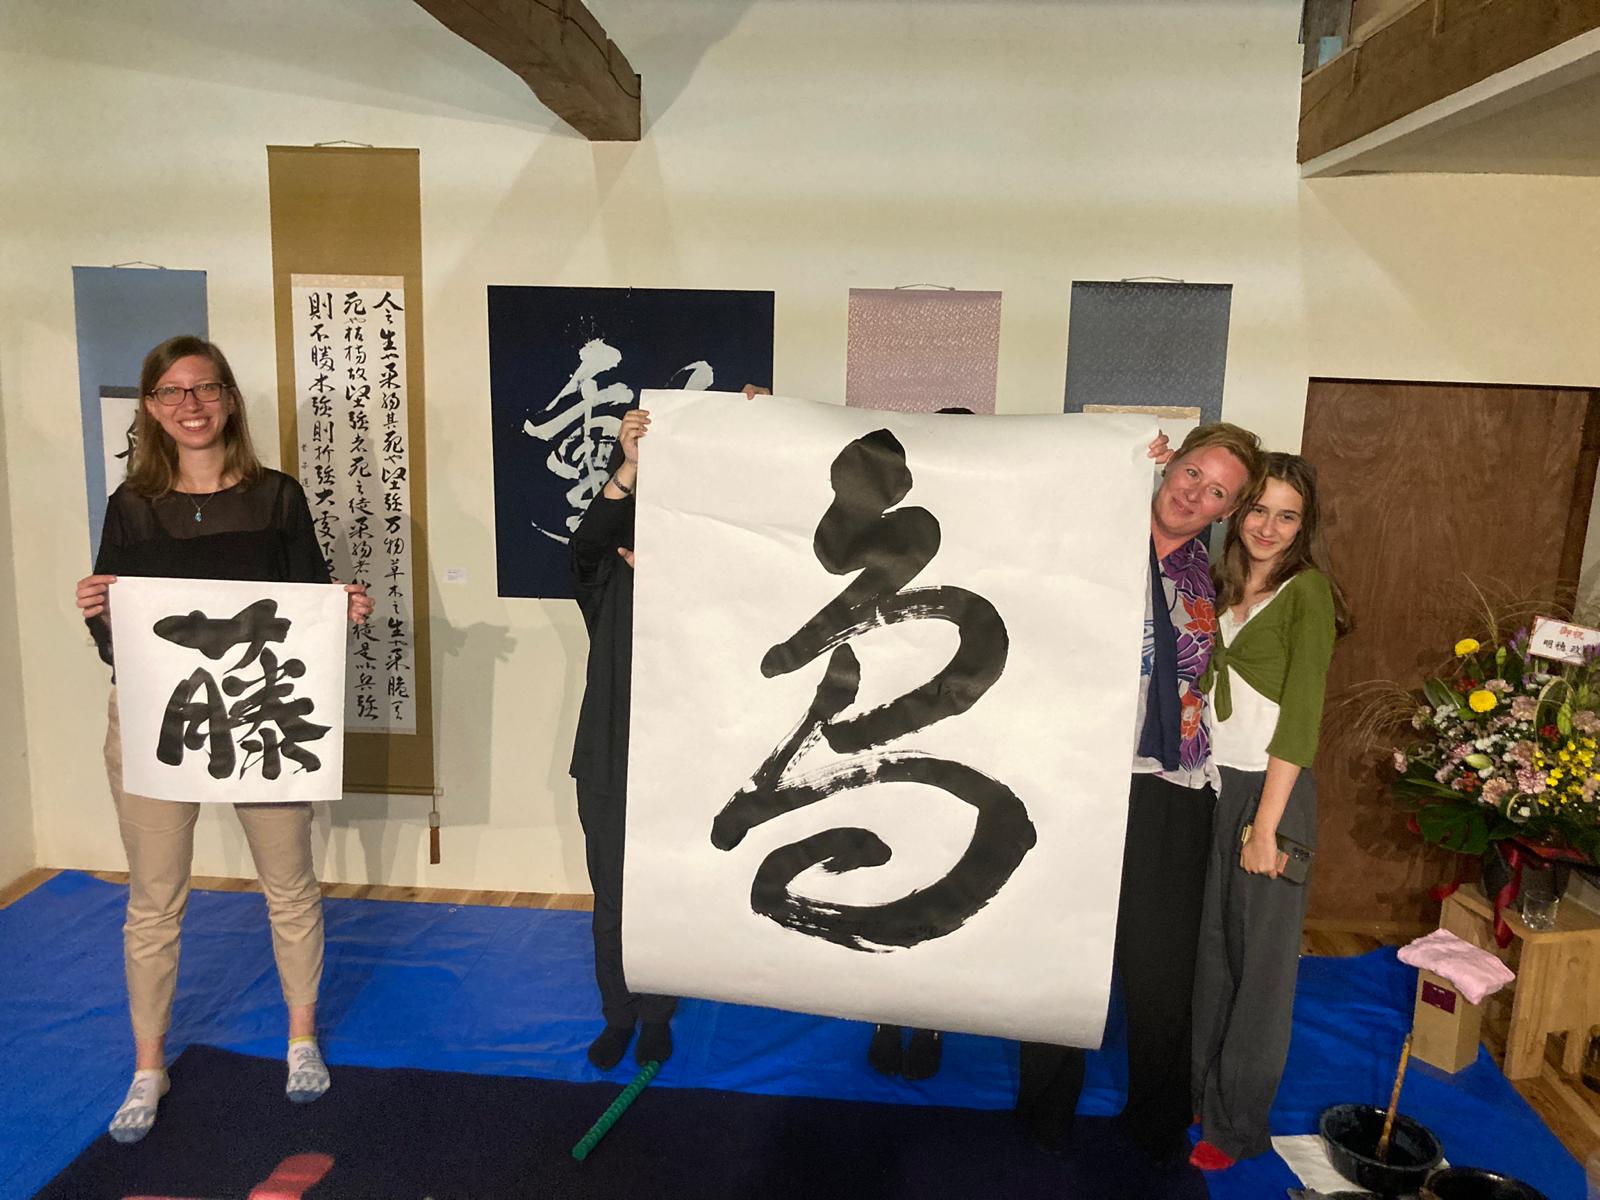 藤
人之生也柔弱其死也堅強万物草木之生也柔脆其
死也枯槁故堅強者死之徒柔弱者生之徒是以兵強
則不勝木強則折強大處下
重
高
御祝
明穂 政